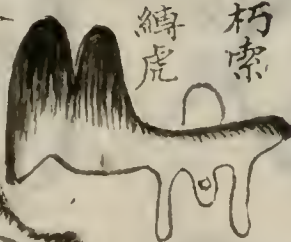 朽索
縛虎